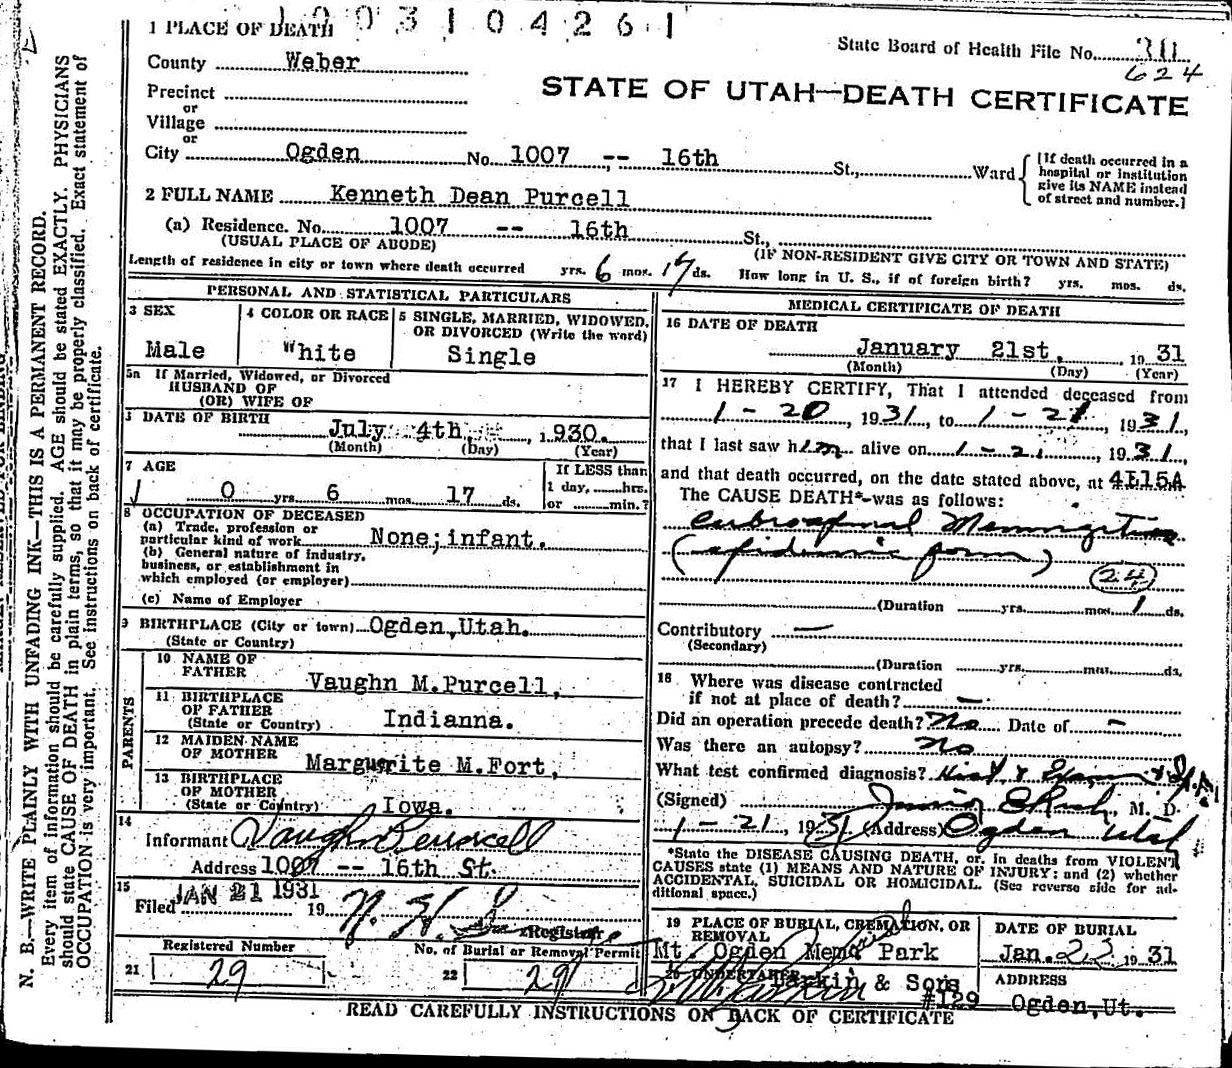 1003104261
1 PLACE OF DEATH
State Board of Health File No. 30
624
County Weber
STATE OF UTAH—DEATH CERTIFICATE
Precinct
or
Village
or
City Ogden No. 1007 -- 16th St., Ward
[If death occurred in a
hospital or institution
give its NAME instead
of street and number.]
2 FULL NAME Kenneth Dean Purcell
(a) Residence. No. 1007 -- 16th St.,
(USUAL PLACE OF ABODE) (IF NON-RESIDENT GIVE CITY OR TOWN AND STATE)
Length of residence in city or town where death occurred yrs. 6 mos. 17 ds. How long in U. S., if of foreign birth? yrs. mos. ds.
PERSONAL AND STATISTICAL PARTICULARS
3 SEX
Male
4 COLOR OR RACE
White
5 SINGLE, MARRIED, WIDOWED,
OR DIVORCED (Write the word)
Single
5a If Married, Widowed, or Divorced
HUSBAND OF
(OR) WIFE OF
DATE OF BIRTH
July 4th, 1930.
(Month) (Day) (Year)
7 AGE
0 yrs. 6 mos. 17 ds.
If LESS than
1 day, hrs.
or min.?
8 OCCUPATION OF DECEASED
(a) Trade, profession or
particular kind of work None; infant.
(b) General nature of industry,
business, or establishment in
which employed (or employer)
(c) Name of Employer
9 BIRTHPLACE (City or town) Ogden, Utah.
(State or Country)
PARENTS
10 NAME OF
FATHER Vaughn M. Purcell,
11 BIRTHPLACE
OF FATHER
(State or Country) Indianna.
12 MAIDEN NAME
OF MOTHER Marguerite M. Fort,
13 BIRTHPLACE
OF MOTHER
(State or Country) Iowa.
14
Informant Vaughn Purcell
Address 1007 -- 16th St.
15
Filed JAN 21 1931 19
Registrar
Registered Number
21 29
No. of Burial or Removal Permit
22 29
MEDICAL CERTIFICATE OF DEATH
16 DATE OF DEATH
January 21st, 19 31
(Month) (Day) (Year)
17 I HEREBY CERTIFY, That I attended deceased from
1 - 20, 1931, to 1 - 21, 1931,
that I last saw him alive on 1 - 21, 1931,
and that death occurred, on the date stated above, at 4:15A
The CAUSE DEATH* was as follows:
Cerebrospinal Meningitis
(epidemic form)
24
(Duration yrs. mos. 1 ds.
Contributory —
(Secondary)
(Duration yrs. mos. ds.
18 Where was disease contracted
if not at place of death? —
Did an operation precede death? No Date of —
Was there an autopsy? No
What test confirmed diagnosis? Hist &
(Signed) Junior E Rich, M. D.
1 - 21, 1931 (Address) Ogden Utah
*State the DISEASE CAUSING DEATH, or, in deaths from VIOLENT
CAUSES state (1) MEANS AND NATURE OF INJURY; and (2) whether
ACCIDENTAL, SUICIDAL OR HOMICIDAL. (See reverse side for ad-
ditional space.)
19 PLACE OF BURIAL, CREMATION, OR
REMOVAL
Mt. Ogden Park
DATE OF BURIAL
Jan. 22 19 31
20 UNDERTAKER
Larkin & Sons
#129
ADDRESS
Ogden, Ut.
READ CAREFULLY INSTRUCTIONS ON BACK OF CERTIFICATE
N. B.—WRITE PLAINLY WITH UNFADING INK—THIS IS A PERMANENT RECORD.
Every item of information should be carefully supplied. AGE should be stated EXACTLY. PHYSICIANS
should state CAUSE OF DEATH in plain terms, so that it may be properly classified. Exact statement of
OCCUPATION is very important. See instructions on back of certificate.